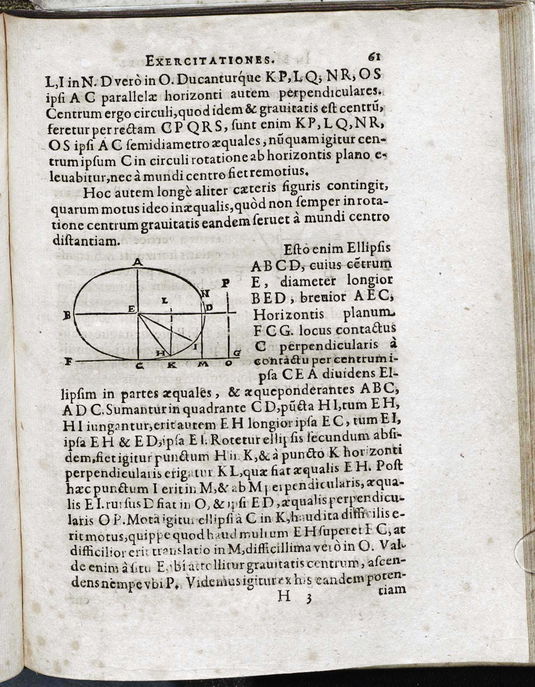 EXERCITATIONES. 61
L, I in N. D verò in O. Ducanturq́ue KP, LQ, NR, OS
ipsi A C parallelæ horizonti autem perpendiculares.
Centrum ergo circuli, quod idem & grauitatis est centrũ,
feretur per rectam C P Q R S, sunt enim K P, L Q, N R,
O S ipsi A C semidiametro æquales, nũquam igitur cen-
trum ipsum C in circuli rotatione ab horizontis plano e-
leuabitur, nec à mundi centro fiet remotius.
Hoc autem longè aliter cæteris figuris contingit,
quarum motus ideo inæqualis, quòd non semper in rota-
tione centrum grauitatis eandem seruet à mundi centro
distantiam.
Esto enim Ellipsis
A B C D, cuius cẽtrum
E, diameter longior
B E D, breuior A E C,
Horizontis planum
F C G. locus contactus
C perpendicularis à
contactu per centrum i-
psa C E A diuidens El-
A
P
L
N
B
E
D
I
H
F
C
K
M
O
G
lipsim in partes æquales, & æqueponderantes A B C,
A D C. Sumantur in quadrante C D, pũcta H I, tum E H,
H I iungantur, erit autem E H longior ipsa E C, tum E I,
ipsa E H & E D, ipsa E I. Rotetur ellipsis secundum absi-
dem, fiet igitur punctum H in K, & à puncto K horizonti
perpendicularis erigatur K L, quæ fiat æqualis E H. Post
hæc punctum I erit in M, & ab M perpendicularis, æqua-
lis E I. rursus D fiat in O, & ipsi E D, æqualis perpendicu-
laris O P. Mota igitur ellipsi à C in K, haud ita difficilis e-
rit motus, quippe quod haud multum E H superet E C, at
difficilior erit translatio in M, difficillima verò in O. Val-
de enim à situ E, ibi attollitur grauitatis centrum, ascen-
dens nempe vbi P. Videmus igitur ex his eandem poten-
H 3 tiam